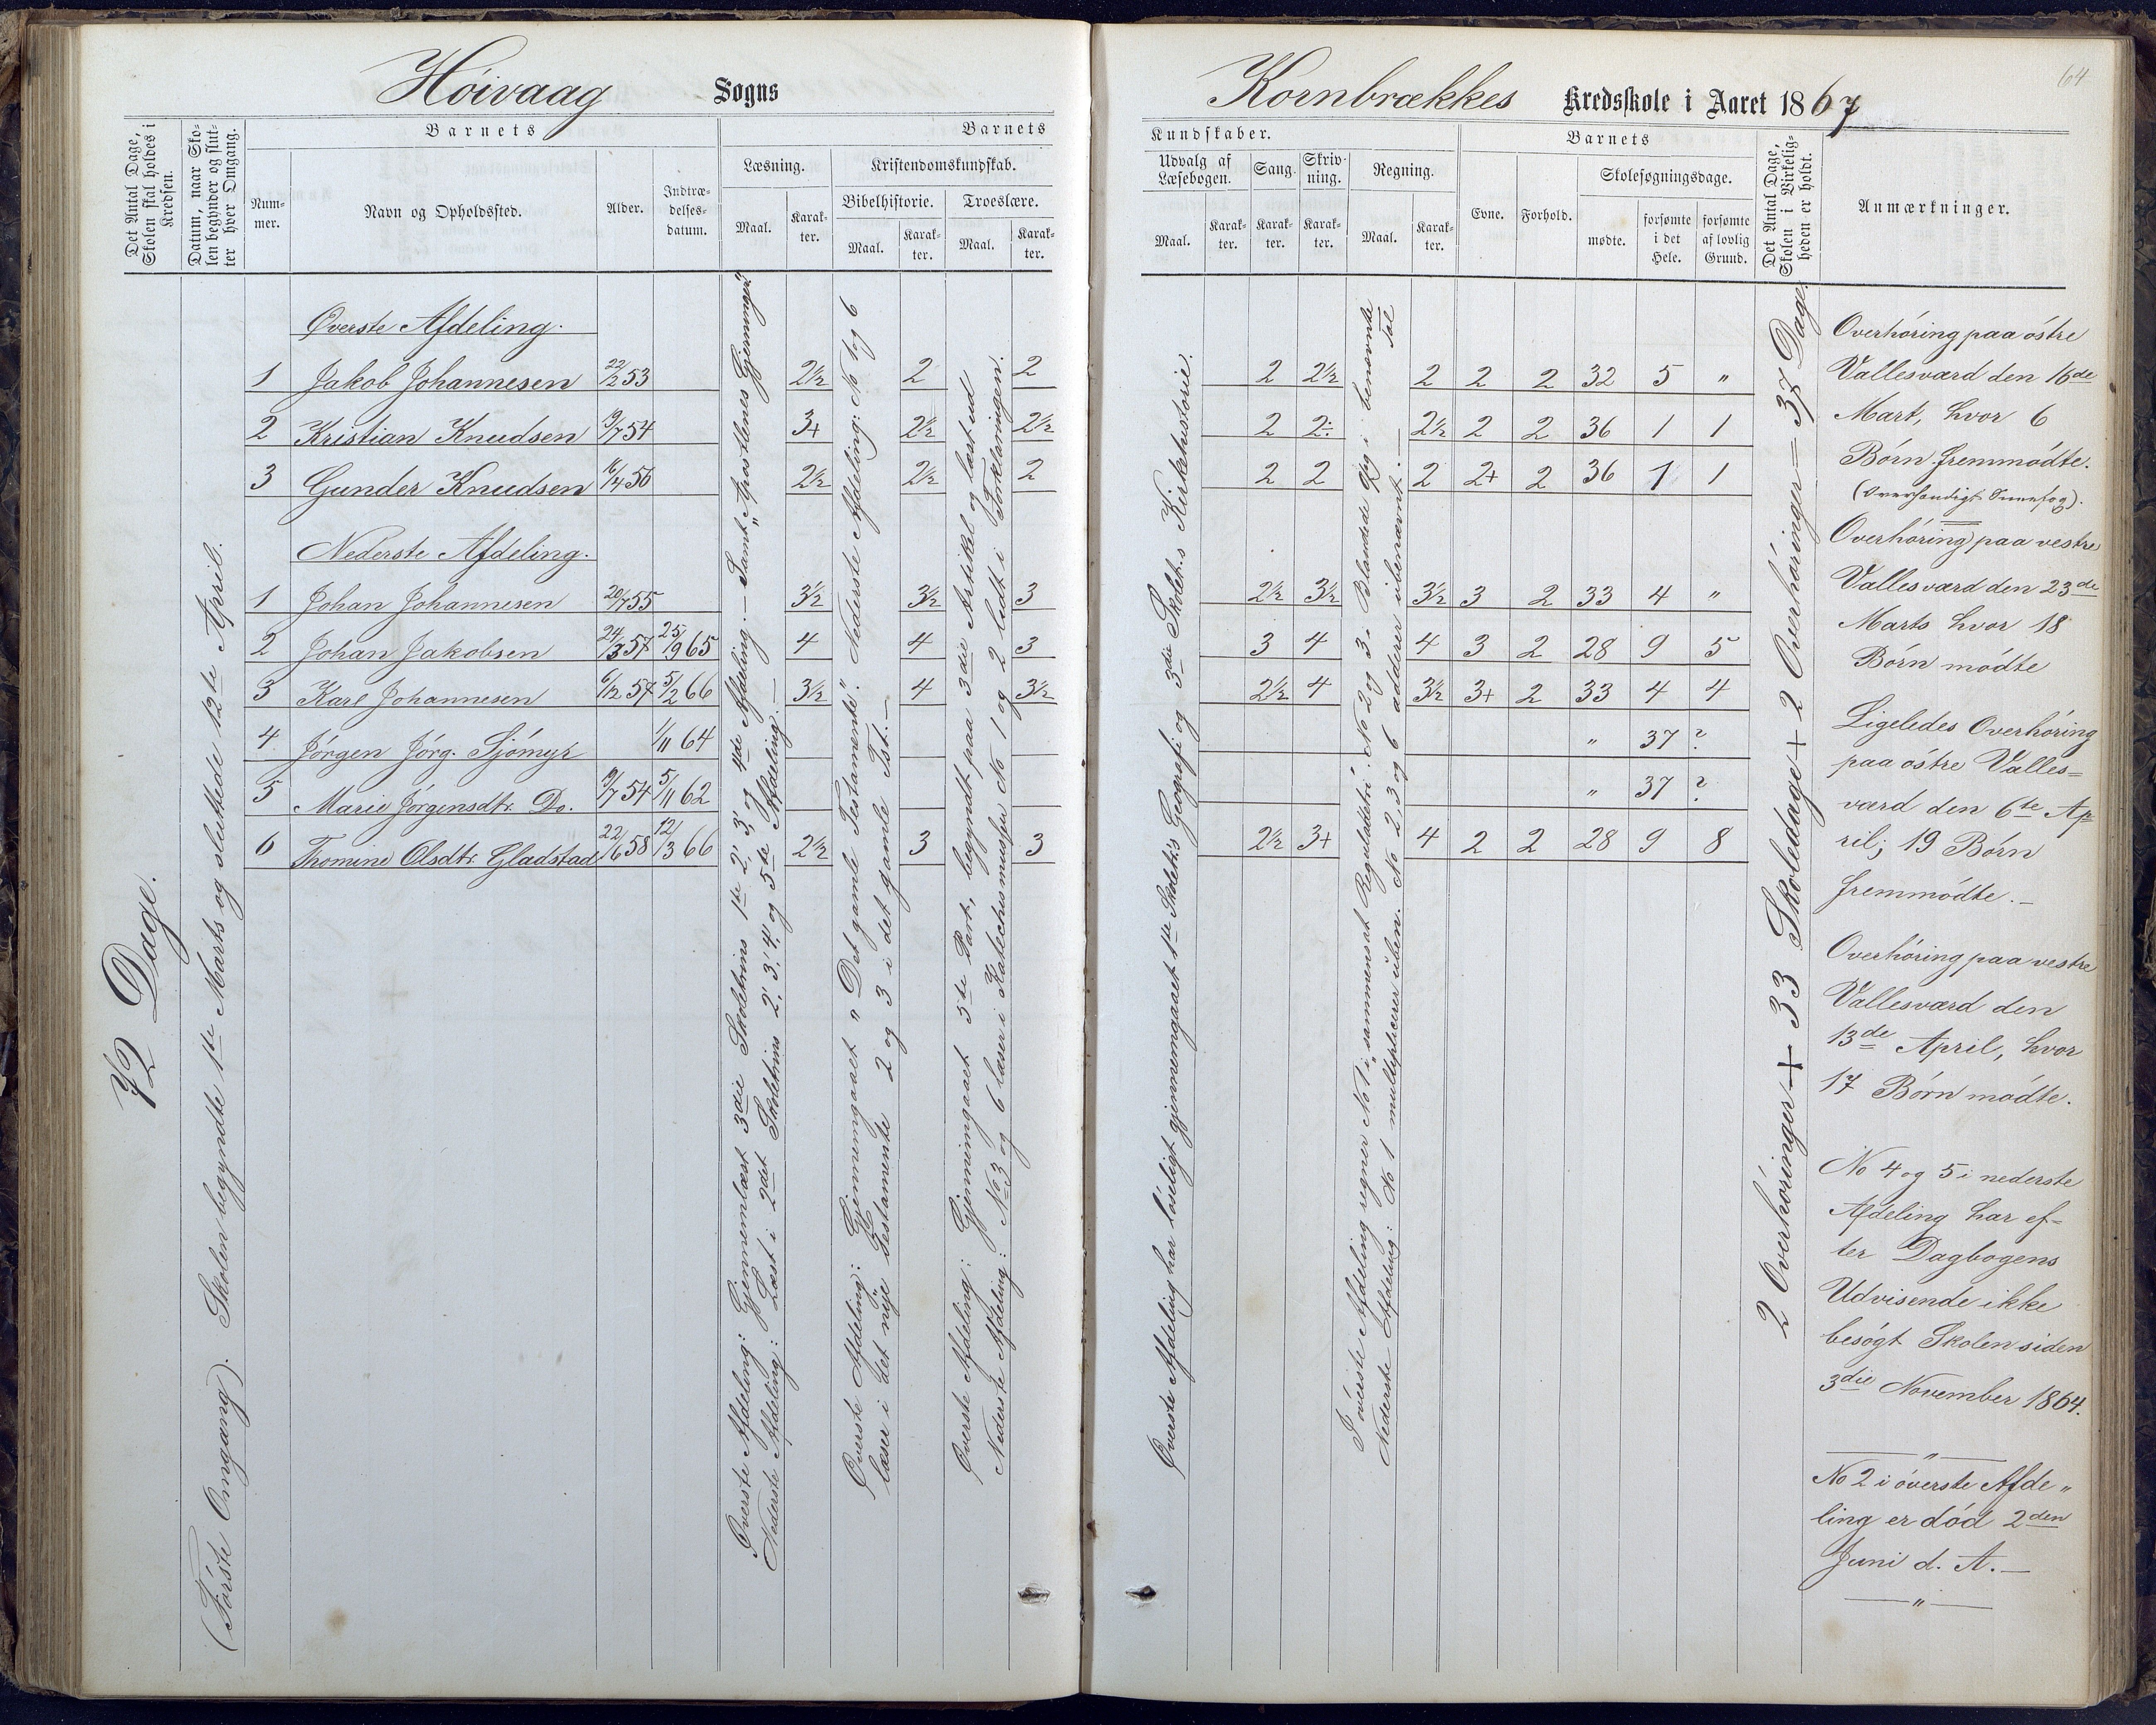 Höivaag Sogns
Det Antal Dage, Skolen skal holdes i Kredsen.
Datum, naar Skolen begynder og slutter hver Omgang.
Barnets
Nummer.
Navn og Opholdssted.
Alder.
Indtrædelsesdatum.
Barnets
Læsning.
Kristendomskundskab.
Bibelhistorie.
Troeslære.
Maal. Karakter. Maal. Karakter. Maal. Karakter.
72 Dage.
(Förste Omgang). Skolen begyndte 1ste Marts og sluttede 12te April.
Øverste Afdeling.
1 Jakob Johannesen 22/2 53 2½ 2 2
2 Kristian Knudsen 9/7 54 3+ 2½ 2½
3 Gunder Knudsen 16/4 56 2½ 2½ 2
Nederste Afdeling.
1 Johan Johannesen 20/7 55 3½ 3½ 3
2 Johan Jakobsen 24/3 57 25/9 65 4 4 3
3 Karl Johannesen 6/12 57 5/2 66 3½ 4 3½
4 Jörgen Jörg. Sjömyr 1/11 64
5 Marie Jörgensdtr. Do. 9/7 54 5/11 62
6 Thomine Olsdtr. Gladstad 22/6 58 12/3 66 2½ 3 3
Øverste Afdeling: Gjennemlæst 3die Skoletrins 1ste 2', 3' og 4de Afdeling. — Samt „Apostlnes Gjerninger"
Nederste Afdeling: Læst i 2det Skoletrins 2', 3', 4' og 5te Afdeling. —
Øverste Afdeling: Gjennemgaaet „Det gamle Testamente". Nederste Afdeling: No 1 og 6
læser i det nye Testamente 2 og 3 i det gamle Tst. —
Øverste Afdeling: Gjennemgaaet 5te Part, begyndt paa 3die Artikel og læst ud
Nederste Afdeling: No 3 og 6 læser i Katechismusen No 1 og 2 ledt i Forklaringen.
64
Kornbrækkes Kredsskole i Aaret 1867
Kundskaber.
Udvalg af Læsebogen.
Sang.
Skrivning.
Regning.
Maal. Karakter. Karakter. Karakter. Maal. Karakter.
Barnets
Evne. Forhold.
Skolesøgningsdage.
mødte. forsømte i det Hele. forsømte af lovlig Grund.
Det Antal Dage, Skolen i Virkeligheden er holdt.
Anmærkninger.
2 2½ 2 2 2 32 5 „
2 2÷ 2½ 2 2 36 1 1
2 2 2 2+ 2 36 1 1
2½ 3½ 3½ 3 2 33 4 „
3 4 4 3 2 28 9 5
2½ 4 3½ 3+ 2 33 4 4
„ 37 ?
„ 37 ?
2½ 3+ 4 2 2 28 9 8
Øverste Afdeling har löseligt gjennemgaaet 1ste Skoletr.s Geografi og 3die Skolet.s Kirkehistorie.
I överste Afdeling regner No 1 i sammensat Reguladetri No 2 og 3. Blandede i benævnte Tal
Nederste Afdeling: No 1 multiplicerer uben. No 2, 3 og 6 adderer ubenævnt. —
2 Overhöringer + 33 Skoledage + 2 Overhöringer = 37 Dage.
Overhöring paa östre
Vallesværd den 16de
Mart, hvor 6
Børn fremmödte.
Overhöring paa vestre
Vallesværd den 23de
Marts hvor 18
Börn mödte
Ligeledes Overhöring
paa östre Valles=
værd den 6te Ap=
ril; 19 Börn
fremmödte. —
Overhöring paa vestre
Vallesværd den
13de April, hvor
17 Börn mödte.
No 4 og 5 i nederste
Afdeling har ef=
ter Dagbogens
Udvisende ikke
besögt Skolen siden
3die November 1864.
— „ —
No 2 i överste Afde„
ling er död 2den
Juni d. A. —
— „ —